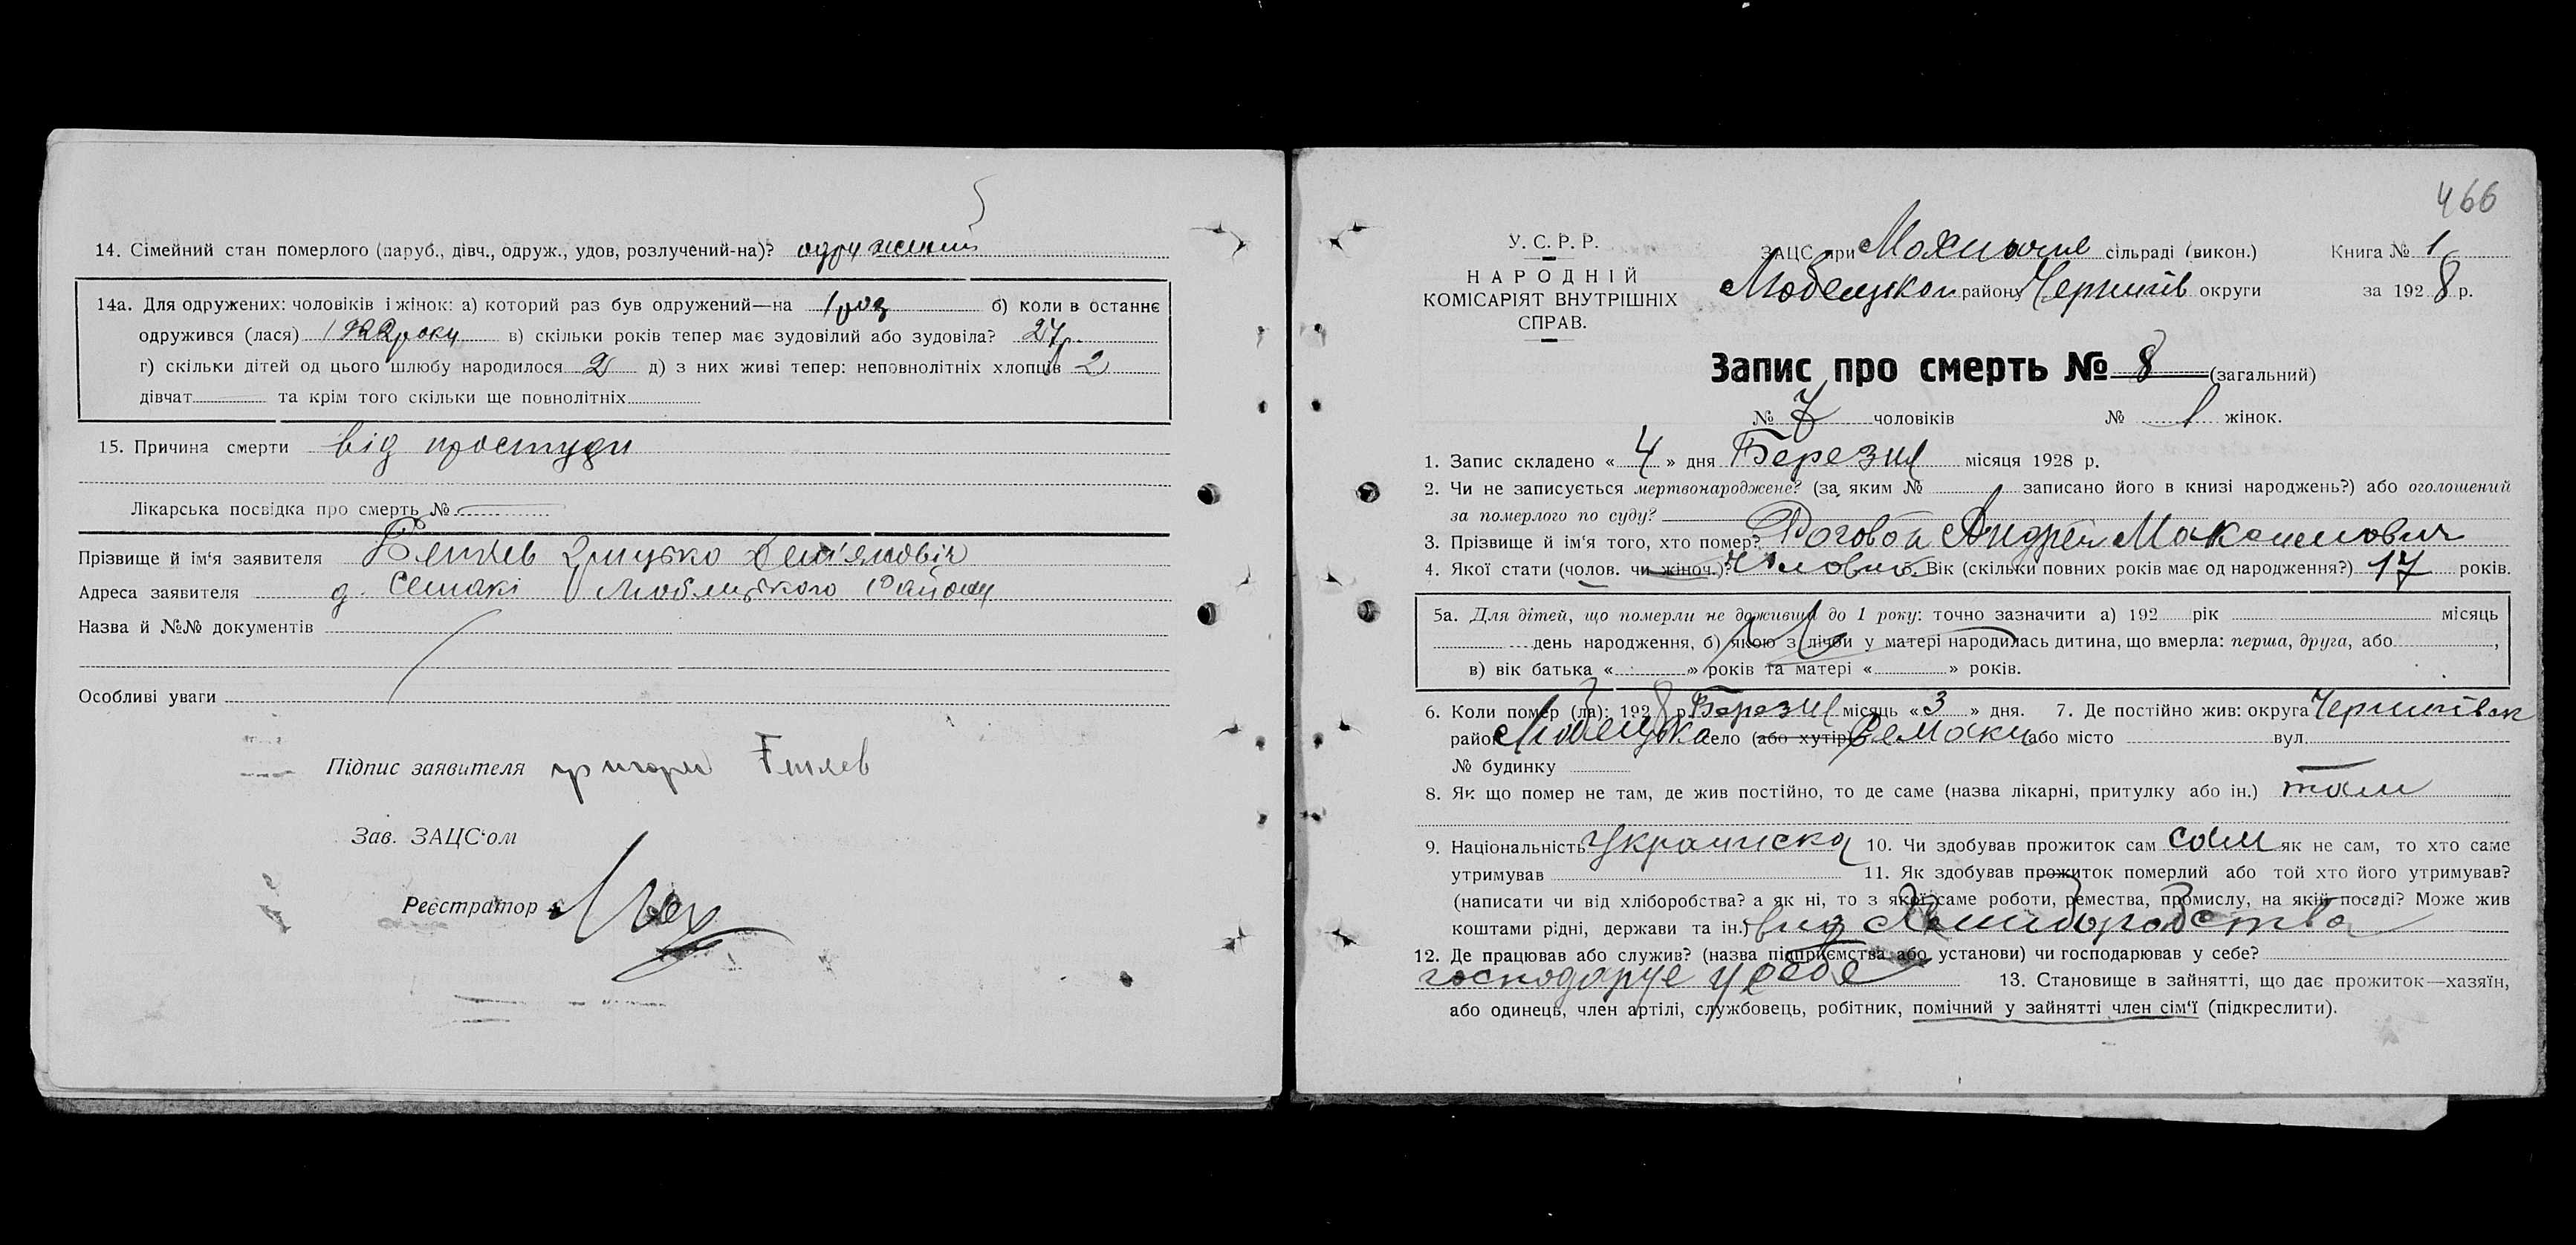 14. Сімейний стан померлого (паруб., дівч., одруж., удов, розлучений-на)? одружений
14а. Для одружених: чоловіків і жінок: а) которий раз був одружений—на 1 раз б) коли в останнє
одружився (лася) 1922 року в) скільки років тепер має зудовілий або зудовіла? 27 р.
г) скільки дітей од цього шлюбу народилося 2 д) з них живі тепер: неповнолітніх хлопців 2
дівчат та крім того скільки ще повнолітніх
15. Причина смерти від простуди
Лікарська посвідка про смерть №
Прізвище й ім'я заявителя Грицько
Адреса заявителя д. Семакі Любецького Району
Назва й №№ документів
Особливі уваги
Підпис заявителя
Зав. ЗАЦС'ом
Реєстратор
466
У. С. Р. Р.
НАРОДНІЙ
КОМІСАРІЯТ ВНУТРІШНІХ
СПРАВ.
ЗАЦС при сільраді (викон.) Книга № 1
Любецком району Чернигів округи за 1928 р.
Запис про смерть № 8 (загальний)
№ 7 чоловіків № 1 жінок.
1. Запис складено « 4 » дня Березня місяця 1928 р.
2. Чи не записується мертвонароджене? (за яким № записано його в книзі народжень?) або оголошений
за померлого по суду?
3. Прізвище й ім'я того, хто помер? Роговой Андрей Максимович
4. Якої стати (чолов. чи жіноч.)? Чоловіч. 5. Вік (скільки повних років має од народження?) 17 років.
5а. Для дітей, що померли не доживши до 1 року: точно зазначити а) 192 рік місяць
день народження, б) якою з лічби у матері народилась дитина, що вмерла: перша, друга, або ,
в) вік батька « » років та матері « » років.
6. Коли помер (ла): 1928 р. Березня місяць « 3 » дня. 7. Де постійно жив: округа Чернигівск
район Любецька село (або хутір) Семаки або місто вул.
№ будинку
8. Як що помер не там, де жив постійно, то де саме (назва лікарні, притулку або ін.) там
9. Національність Украинска 10. Чи здобував прожиток сам сам як не сам, то хто саме
утримував 11. Як здобував прожиток померлий або той хто його утримував?
(написати чи від хліборобства? а як ні, то з якої саме роботи, ремества, промислу, на якій посаді? Може жив
коштами рідні, держави та ін.) від хлиборобства
12. Де працював або служив? (назва підприємства або установи) чи господарював у себе?
господарує у себе 13. Становище в зайнятті, що дає прожиток—хазяїн,
або одинець, член артілі, службовець, робітник, помічний у зайнятті член сім'ї (підкреслити).